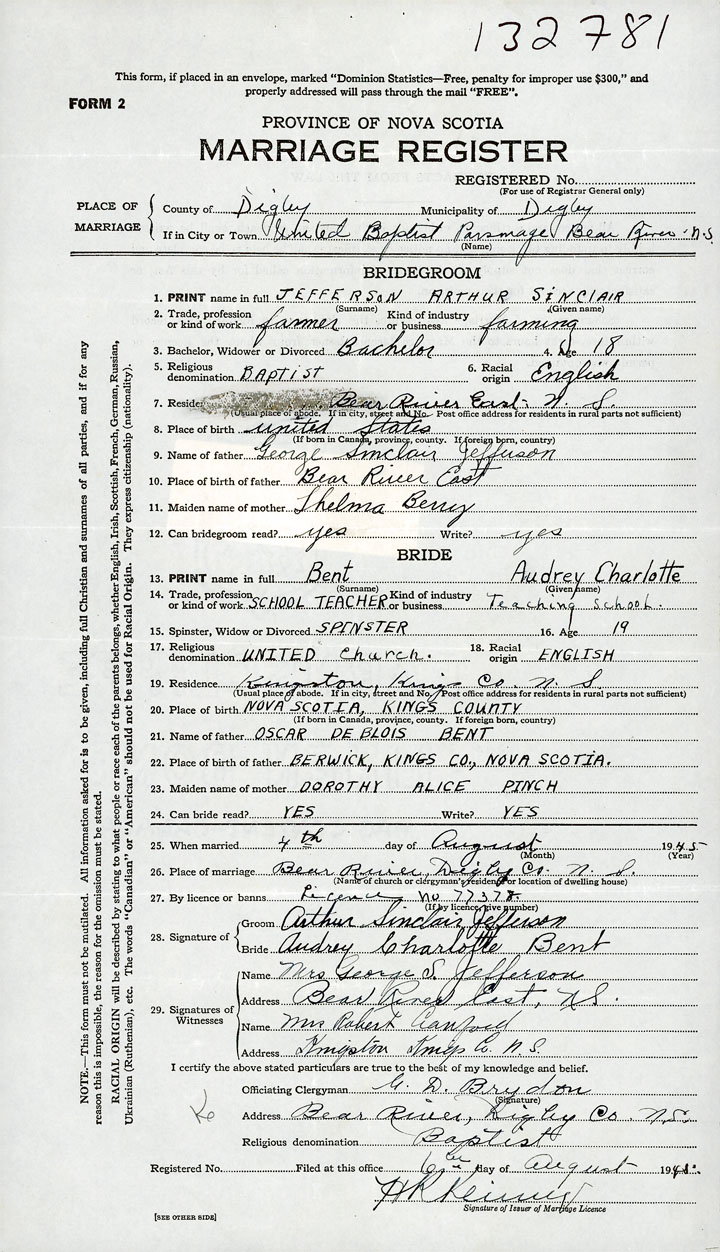 132781
This form, if placed in an envelope, marked "Dominion Statistics—Free, penalty for improper use $300," and
properly addressed will pass through the mail "FREE".
FORM 2
PROVINCE OF NOVA SCOTIA
MARRIAGE REGISTER
REGISTERED No.
(For use of Registrar General only)
PLACE OF MARRIAGE
County of Digby Municipality of Digby
If in City or Town United Baptist Parsonage Bear River N.S.
(Name)
BRIDEGROOM
1. PRINT name in full JEFFERSON ARTHUR SINCLAIR
(Surname) (Given name)
2. Trade, profession or kind of work farmer Kind of industry or business farming
3. Bachelor, Widower or Divorced Bachelor 4. Age 18
5. Religious denomination BAPTIST 6. Racial origin English
7. Residen Bear River East N. S.
(Usual place of abode. If in city, street and No. Post office address for residents in rural parts not sufficient)
8. Place of birth United States
(If born in Canada, province, county. If foreign born, country)
9. Name of father George Sinclair Jefferson
10. Place of birth of father Bear River East
11. Maiden name of mother Thelma Berry
12. Can bridegroom read? yes Write? yes
BRIDE
13. PRINT name in full Bent Audrey Charlotte
(Surname) (Given name)
14. Trade, profession or kind of work SCHOOL TEACHER Kind of industry or business Teaching School.
15. Spinster, Widow or Divorced SPINSTER 16. Age 19
17. Religious denomination UNITED Church. 18. Racial origin ENGLISH
19. Residence Kingston, Kings Co. N. S.
(Usual place of abode. If in city, street and No. Post office address for residents in rural parts not sufficient)
20. Place of birth NOVA SCOTIA, KINGS COUNTY
(If born in Canada, province, county. If foreign born, country)
21. Name of father OSCAR DE BLOIS BENT
22. Place of birth of father BERWICK, KINGS CO., NOVA SCOTIA.
23. Maiden name of mother DOROTHY ALICE PINCH
24. Can bride read? YES Write? YES
25. When married 4th day of August 1945
(Month) (Year)
26. Place of marriage Bear River, Digby Co. N. S.
(Name of church or clergyman's residence or location of dwelling house)
27. By licence or banns Licence no 77378
(If by licence, give number)
28. Signature of
Groom Arthur Sinclair Jefferson
Bride Audrey Charlotte Bent
29. Signatures of Witnesses
Name Mrs George S. Jefferson
Address Bear River East, N.S.
Name Mrs Robert
Address Kingston Kings Co. N.S.
I certify the above stated particulars are true to the best of my knowledge and belief.
Officiating Clergyman G. D. Brydon
(Signature)
Address Bear River, Digby Co. N.S.
Religious denomination Baptist
Registered No. Filed at this office 6th day of August 1945.
Signature of Issuer of Marriage Licence
[SEE OTHER SIDE]
NOTE.—This form must not be mutilated. All information asked for is to be given, including full Christian and surnames of all parties, and if for any
reason this is impossible, the reason for the omission must be stated.
RACIAL ORIGIN will be described by stating to what people or race each of the parents belongs, whether English, Irish, Scottish, French, German, Russian,
Ukrainian (Ruthenian), etc. The words "Canadian" or "American" should not be used for Racial Origin. They express citizenship (nationality).